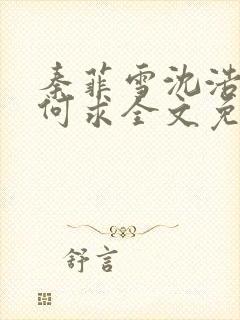 秦菲雪沈浩
何求全文免
舒言